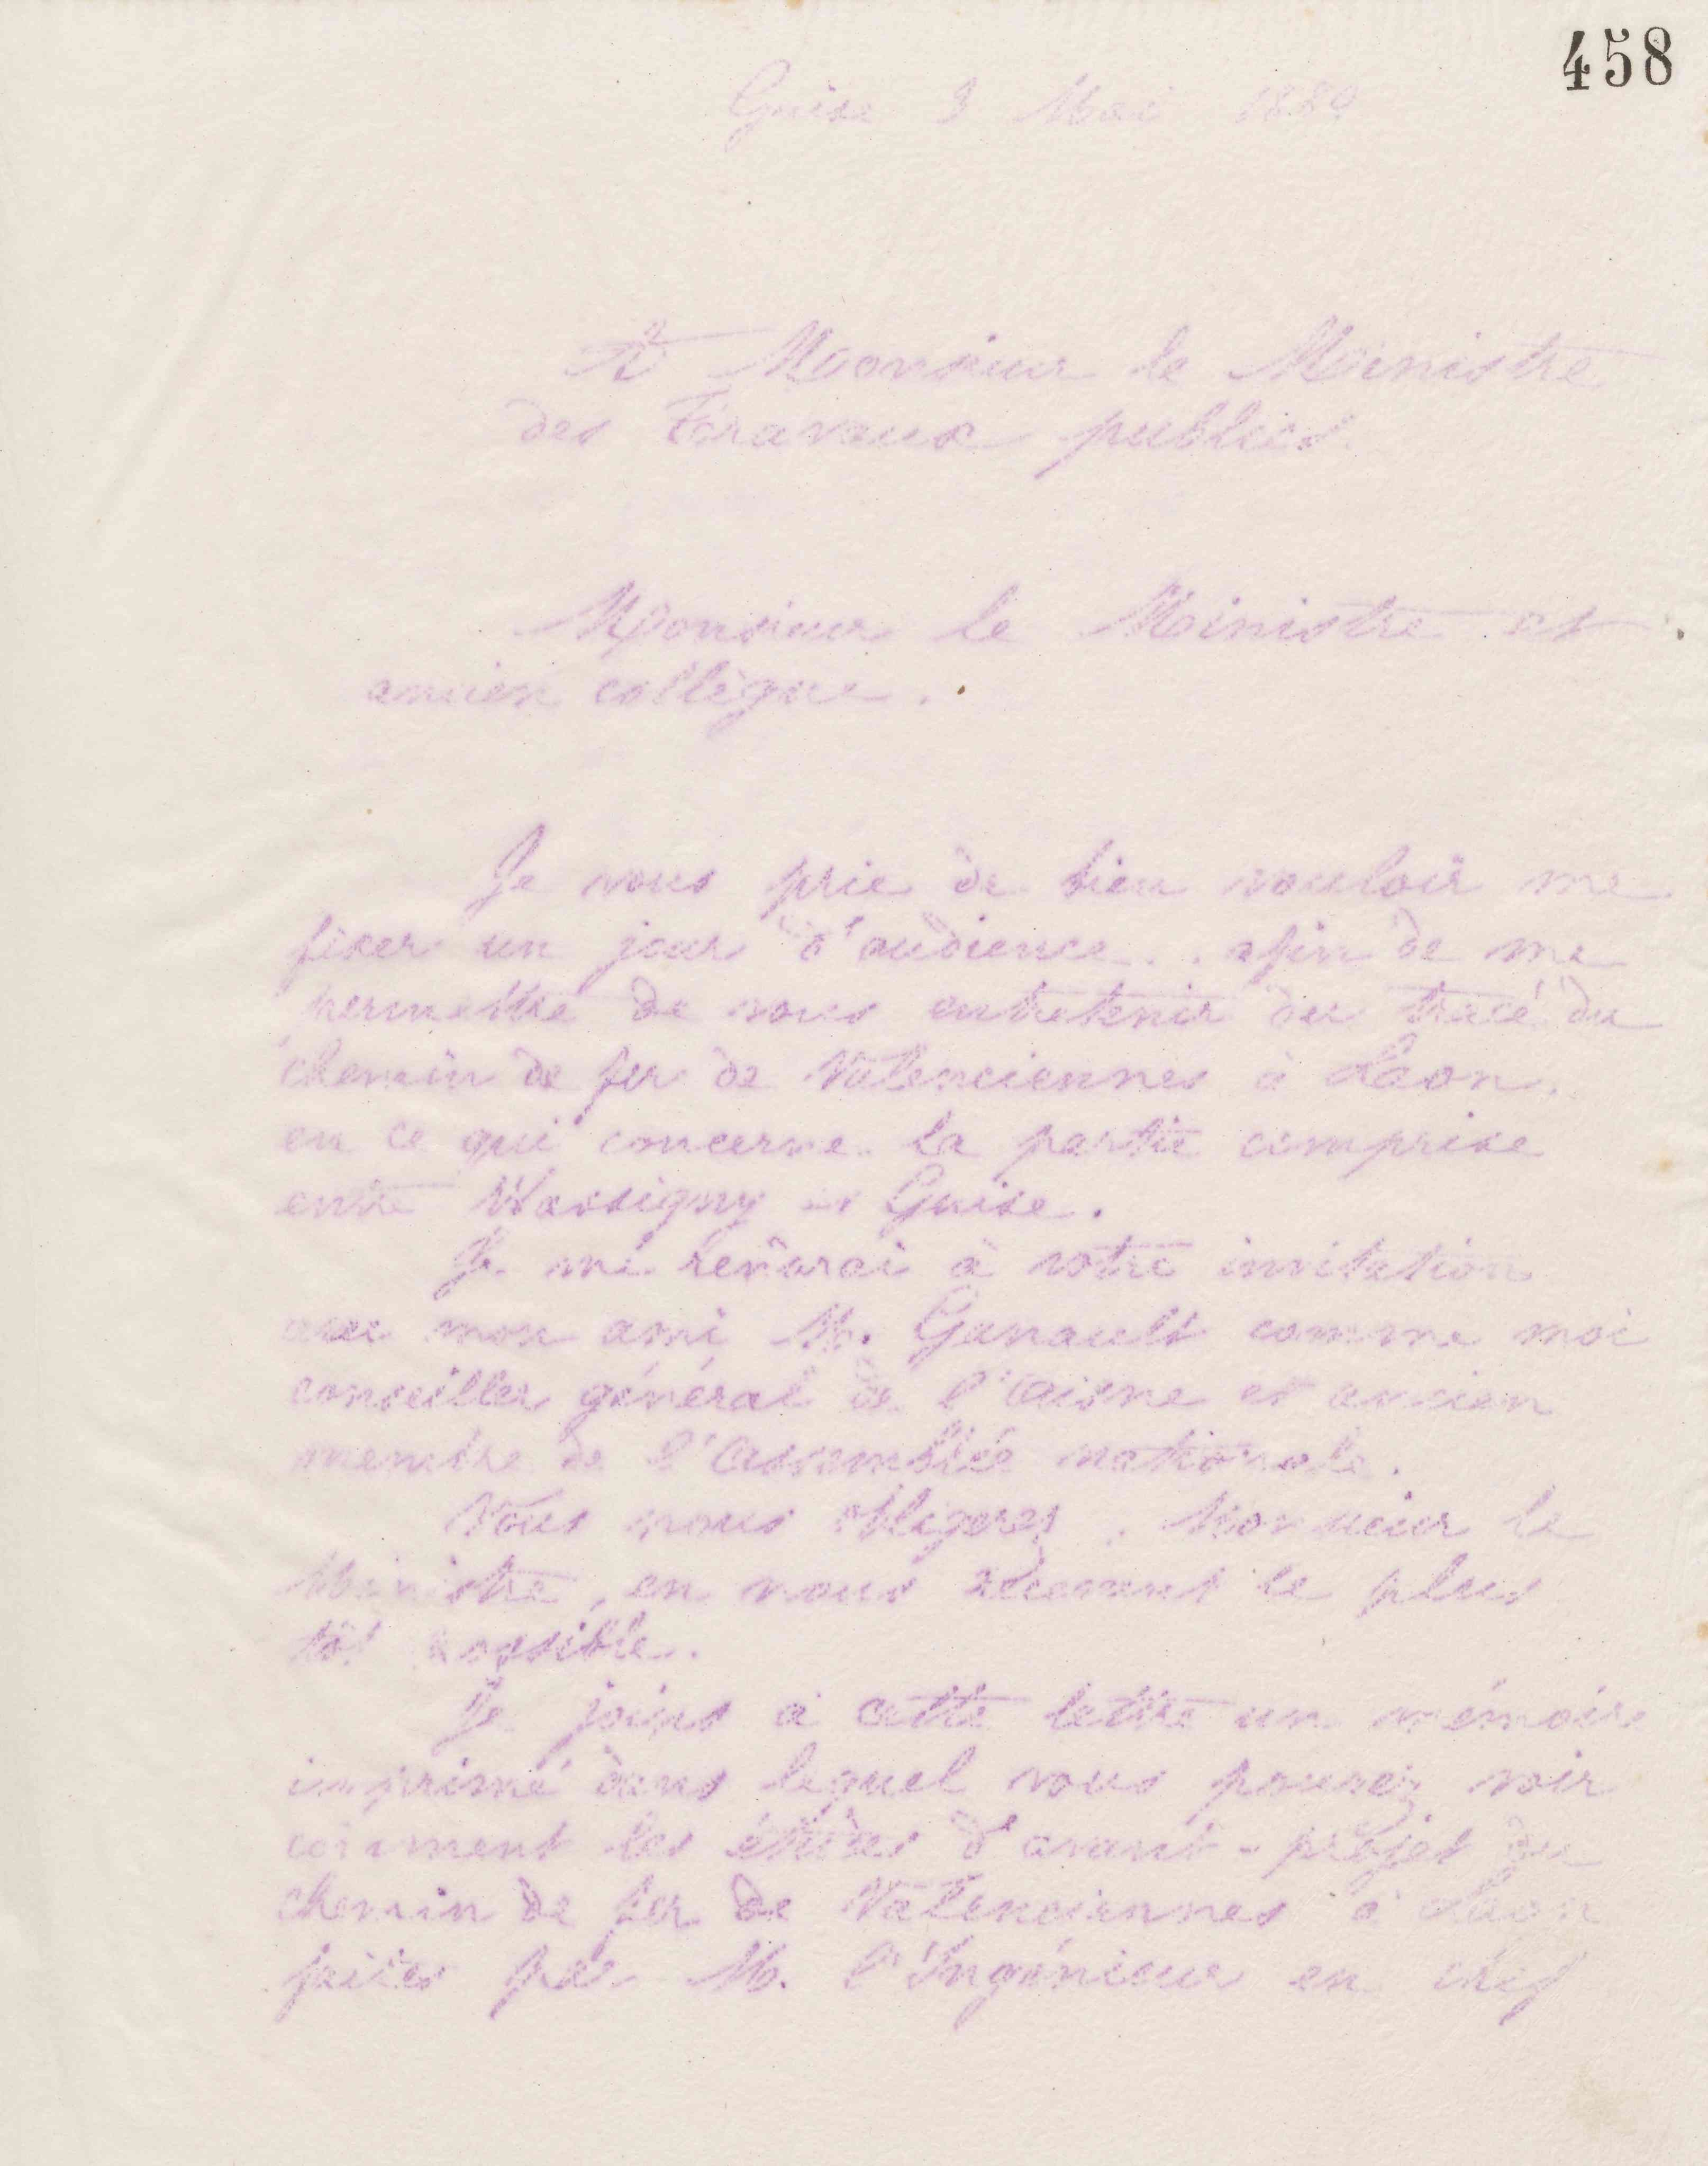 458
Guise 3 Mai 1880
A Monsieur le Ministre
des Travaux publics
Monsieur le Ministre et
ancien collègue.
Je vous prie de bien vouloir me
fixer un jour d'audience afin de me
permettre de vous entretenir du tracé du
chemin de fer de Valenciennes à Laon,
en ce qui concerne la partie comprise
entre Wassigny et Guise.
Je me rendrai à votre invitation
avec mon ami M. Ganault comme moi
conseiller général de l'Aisne et ancien
membre de l'Assemblée nationale.
Vous nous obligerez, Monsieur le
Ministre, en nous recevant le plus
tôt possible.
Je joins à cette lettre un mémoire
imprimé dans lequel vous pourrez voir
comment les études d'avant-projet du
chemin de fer de Valenciennes à Laon
faites par M. l'Ingénieur en chef